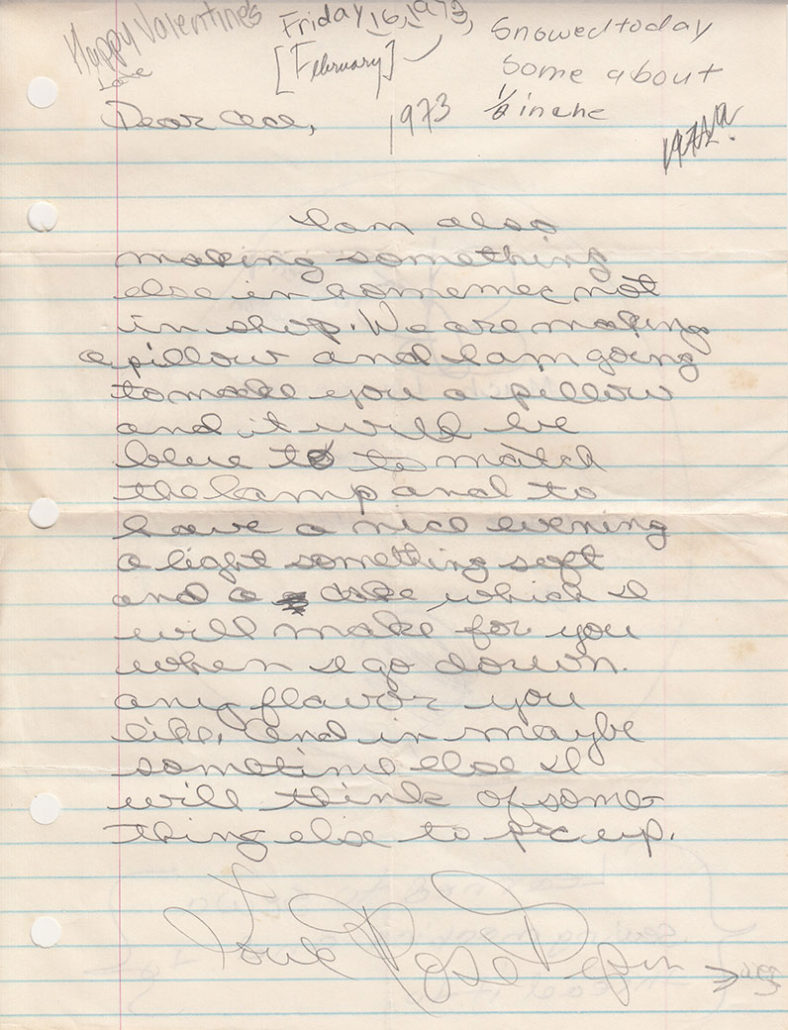 Happy Valentines
Love
Friday, 16, 1973,
[February]
1973
Snowed today
some about
1/8 inche
Dear Ace,
I am also
making something
else in homemec not
in shop. We are making
a pillow and I am going
to make you a pillow
and it will be
blue to match
the lamp and to
have a nice evening
a light something soft
and a cake which I
will make for you
when I go down.
any flavor you
like. And in maybe
sometime else I
will think of some-
thing else to up.
Love Rose